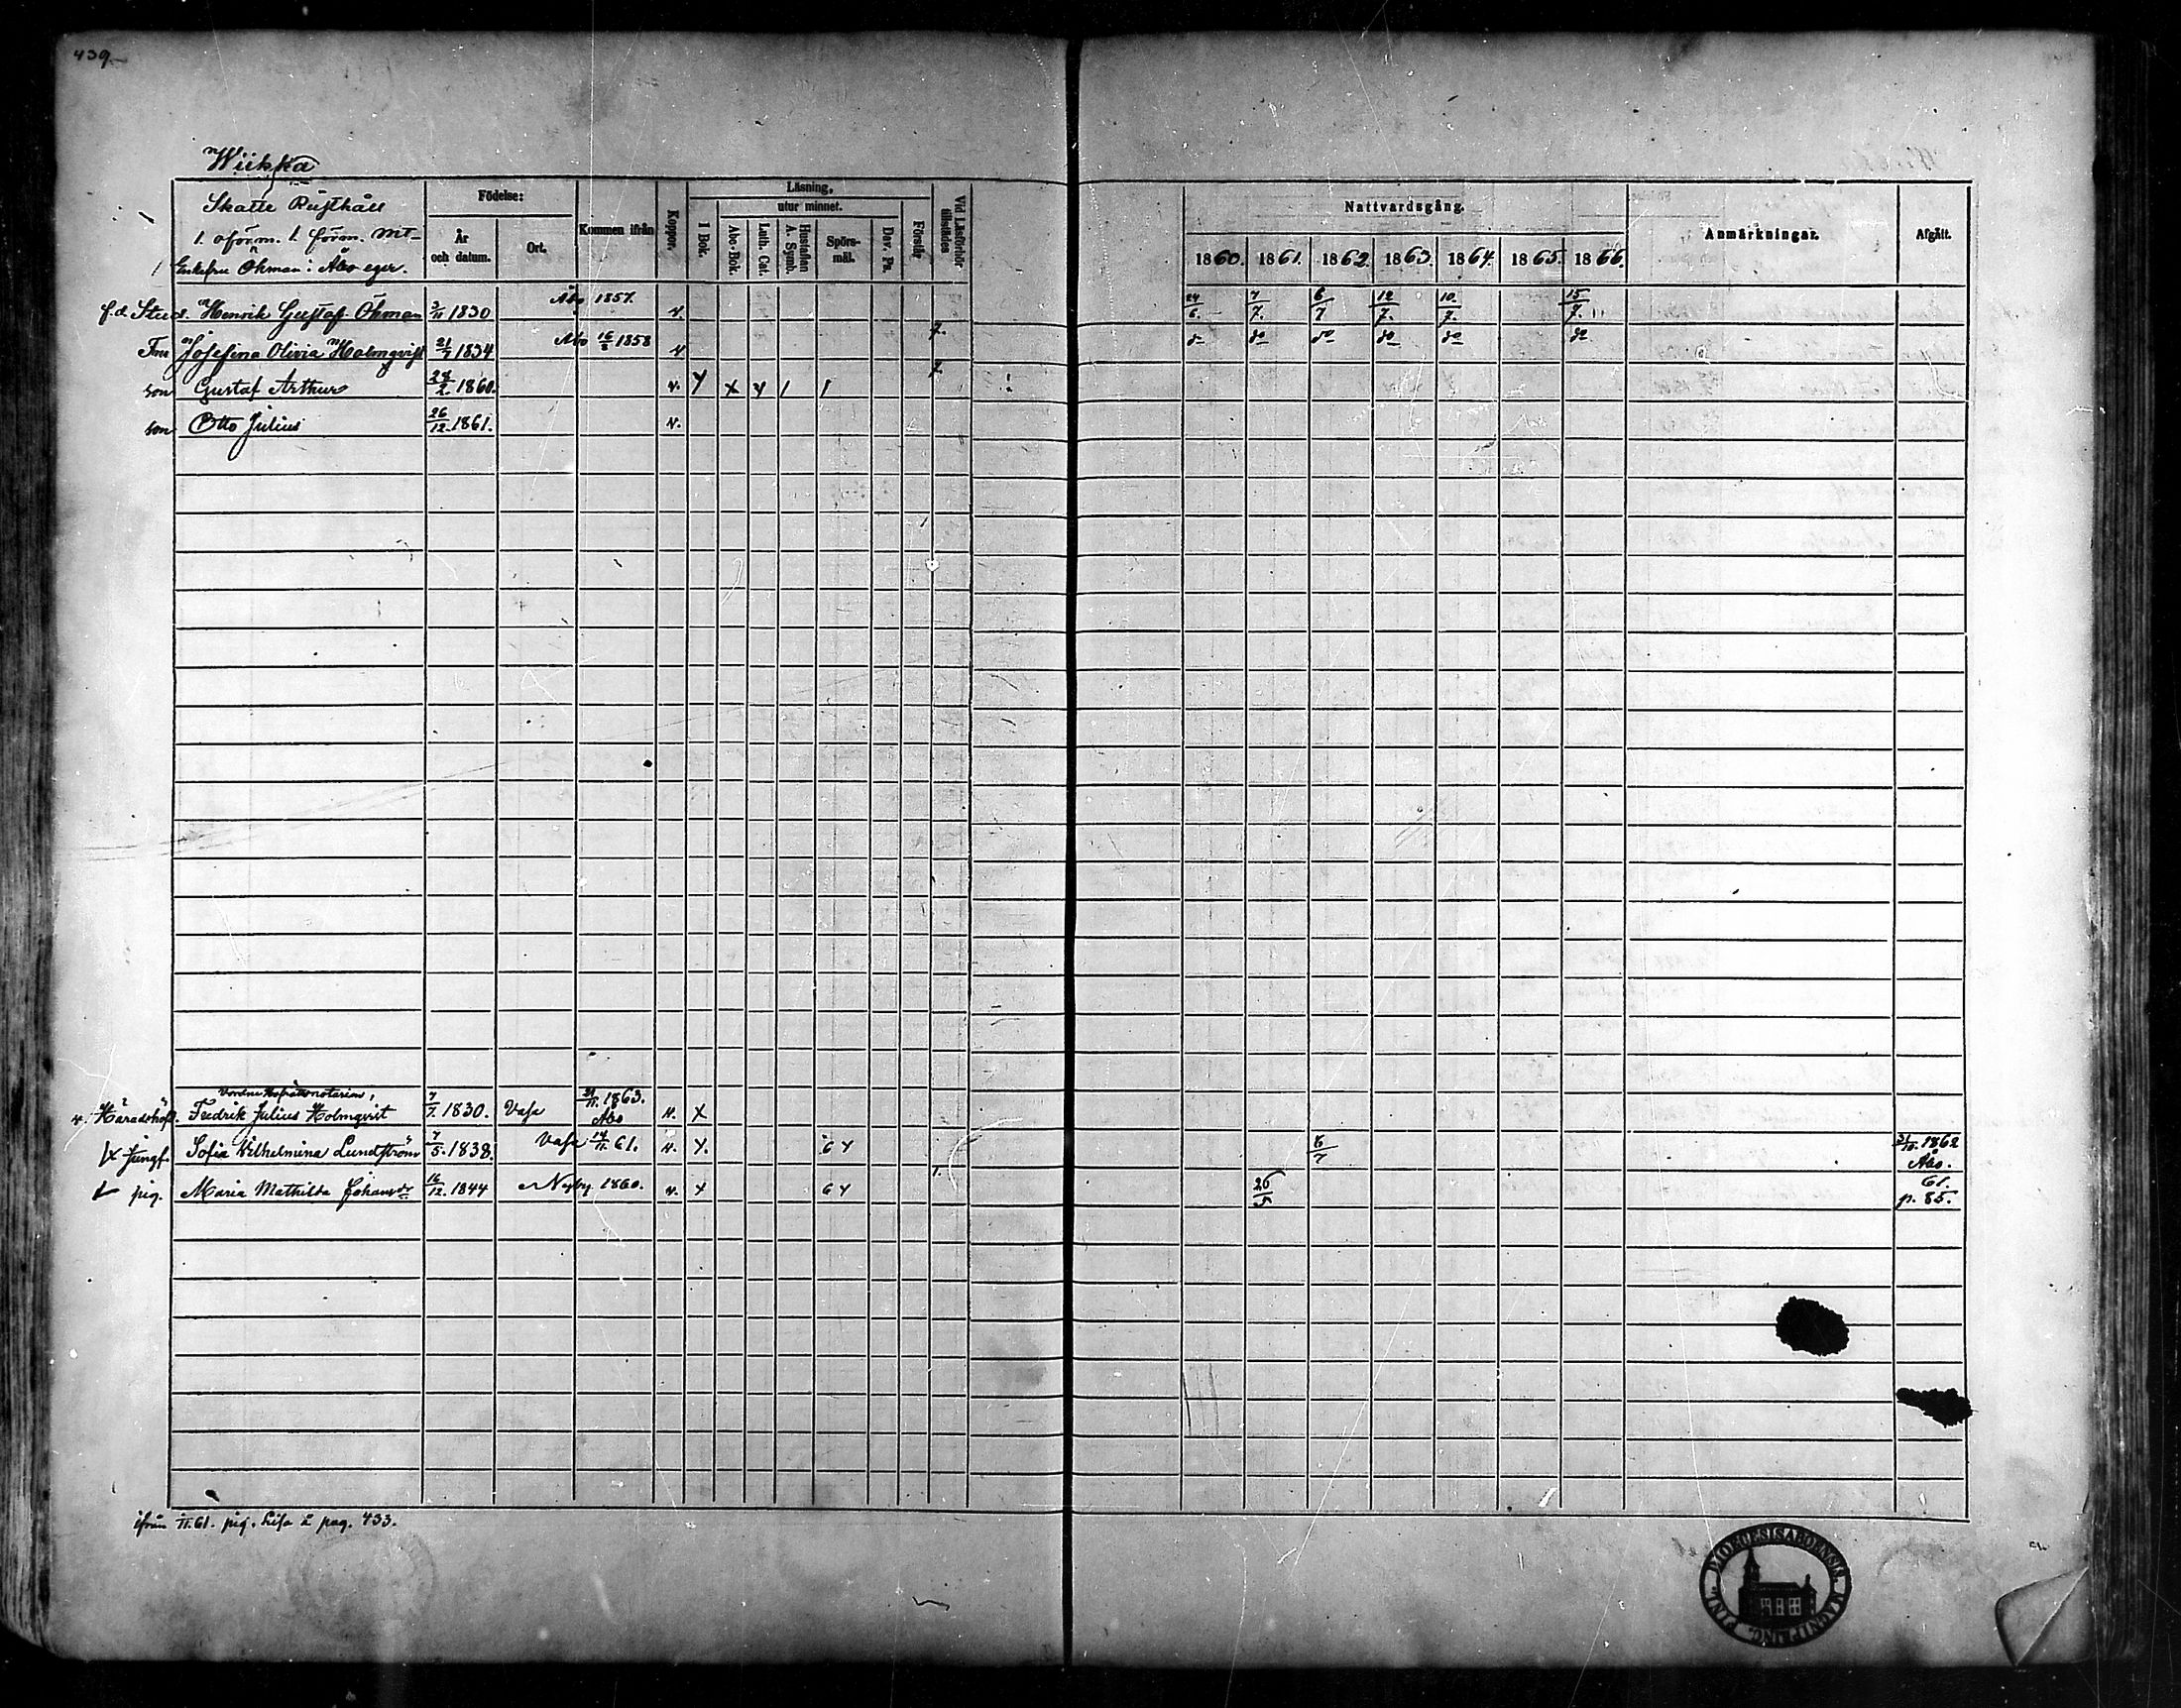 439
Wiikka
Skatte Rusthåll
1. oförm. 1. förm. mt-
Enkefru Öhman i Åbo eger.
Födelse:
År och datum.
Ort.
Kommen ifrån
Koppor.
Läsning,
I Bok.
utur minnet.
Abc-Bok.
Luth. Cat.
Hustaflan A. Symb.
Spörs-mål.
Dav. Ps.
Förstår
Vid Läsförhör tillstädes
Nattvardsgång.
1860. 1861. 1862. 1863. 1864. 1865. 1866.
Anmärkningar.
Afgått.
f.d. Stud. Henrik Gustaf Öhman 3/11 1830 Åbo 1857. v. 24/6 7/7. 6/7 12/7. 10/7. 15/7.
Fru Josefina Olivia Holmqvist 21/7 1834 Åbo 16/8 1858 v do do do do do do
son Gustaf Arthur 24/2. 1860. v.
son Otto Julius 26/12. 1861. v.
Vordne Hofrättsnotarien,
v. Häradshöfd. Fredrik Julius Holmqvist 7/7. 1830. Vasa 21/11. 1863. Åbo v. x
Jungf. Sofia Wilhelmina Lundström 7/5. 1838. Vasa 14/11. 61. v. 6/7 31/10. 1862 Åbo.
pig. Maria Mathilda Johansdr 16/12. 1844 Nyby 1860. v. 26/5 61. p. 85.
ifrån 11.61. pig. Lisa å pag. 433.
DIOECESIS ABOENSIS. MAGNI PRINC. FINL.